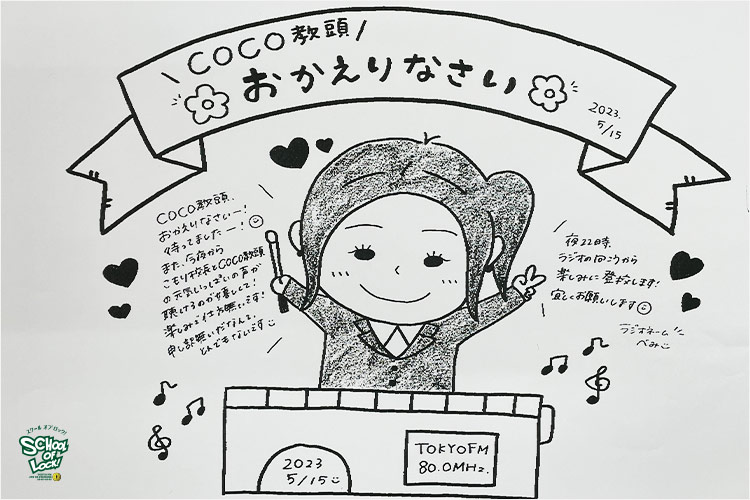 COCO教頭
おかえりなさい
2023.
5/15
COCO教頭、
おかえりなさいー!
待ってましたー!
また、今夜から
こもり校長とCOCO教頭
の元気いっぱいの声が
聴けるのが嬉しくて!
楽しみで仕方無いです!
申し訳無いだなんて、
とんでもないです
夜22時、
ラジオの向こうから
楽しみに登校します!
宜しくお願いします
ラジオネーム
べみ
2023
5/15
TOKYOFM
80.0MHz.
スクール オブ ロック!
SCHOOL
OF
LOCK!